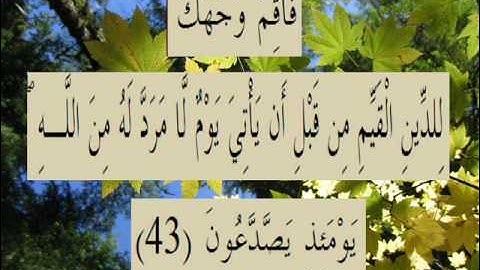 فَأَقِمْ وَجْهَكَ
لِلدِّينِ الْقَيِّمِ مِن قَبْلِ أَن يَأْتِيَ يَوْمٌ لَّا مَرَدَّ لَهُ مِنَ اللَّـهِ ۖ
يَوْمَئِذٍ يَصَّدَّعُونَ (43)